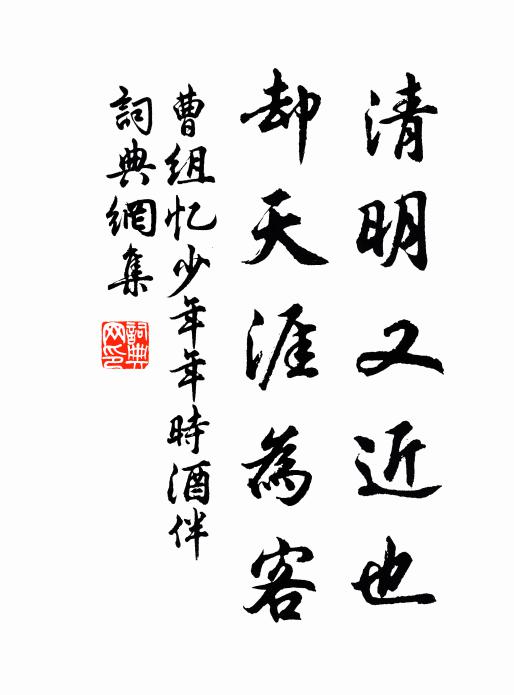 清明又近也
却天涯為客
曹組忆少年年時酒伴
詞典網集
詞典網印